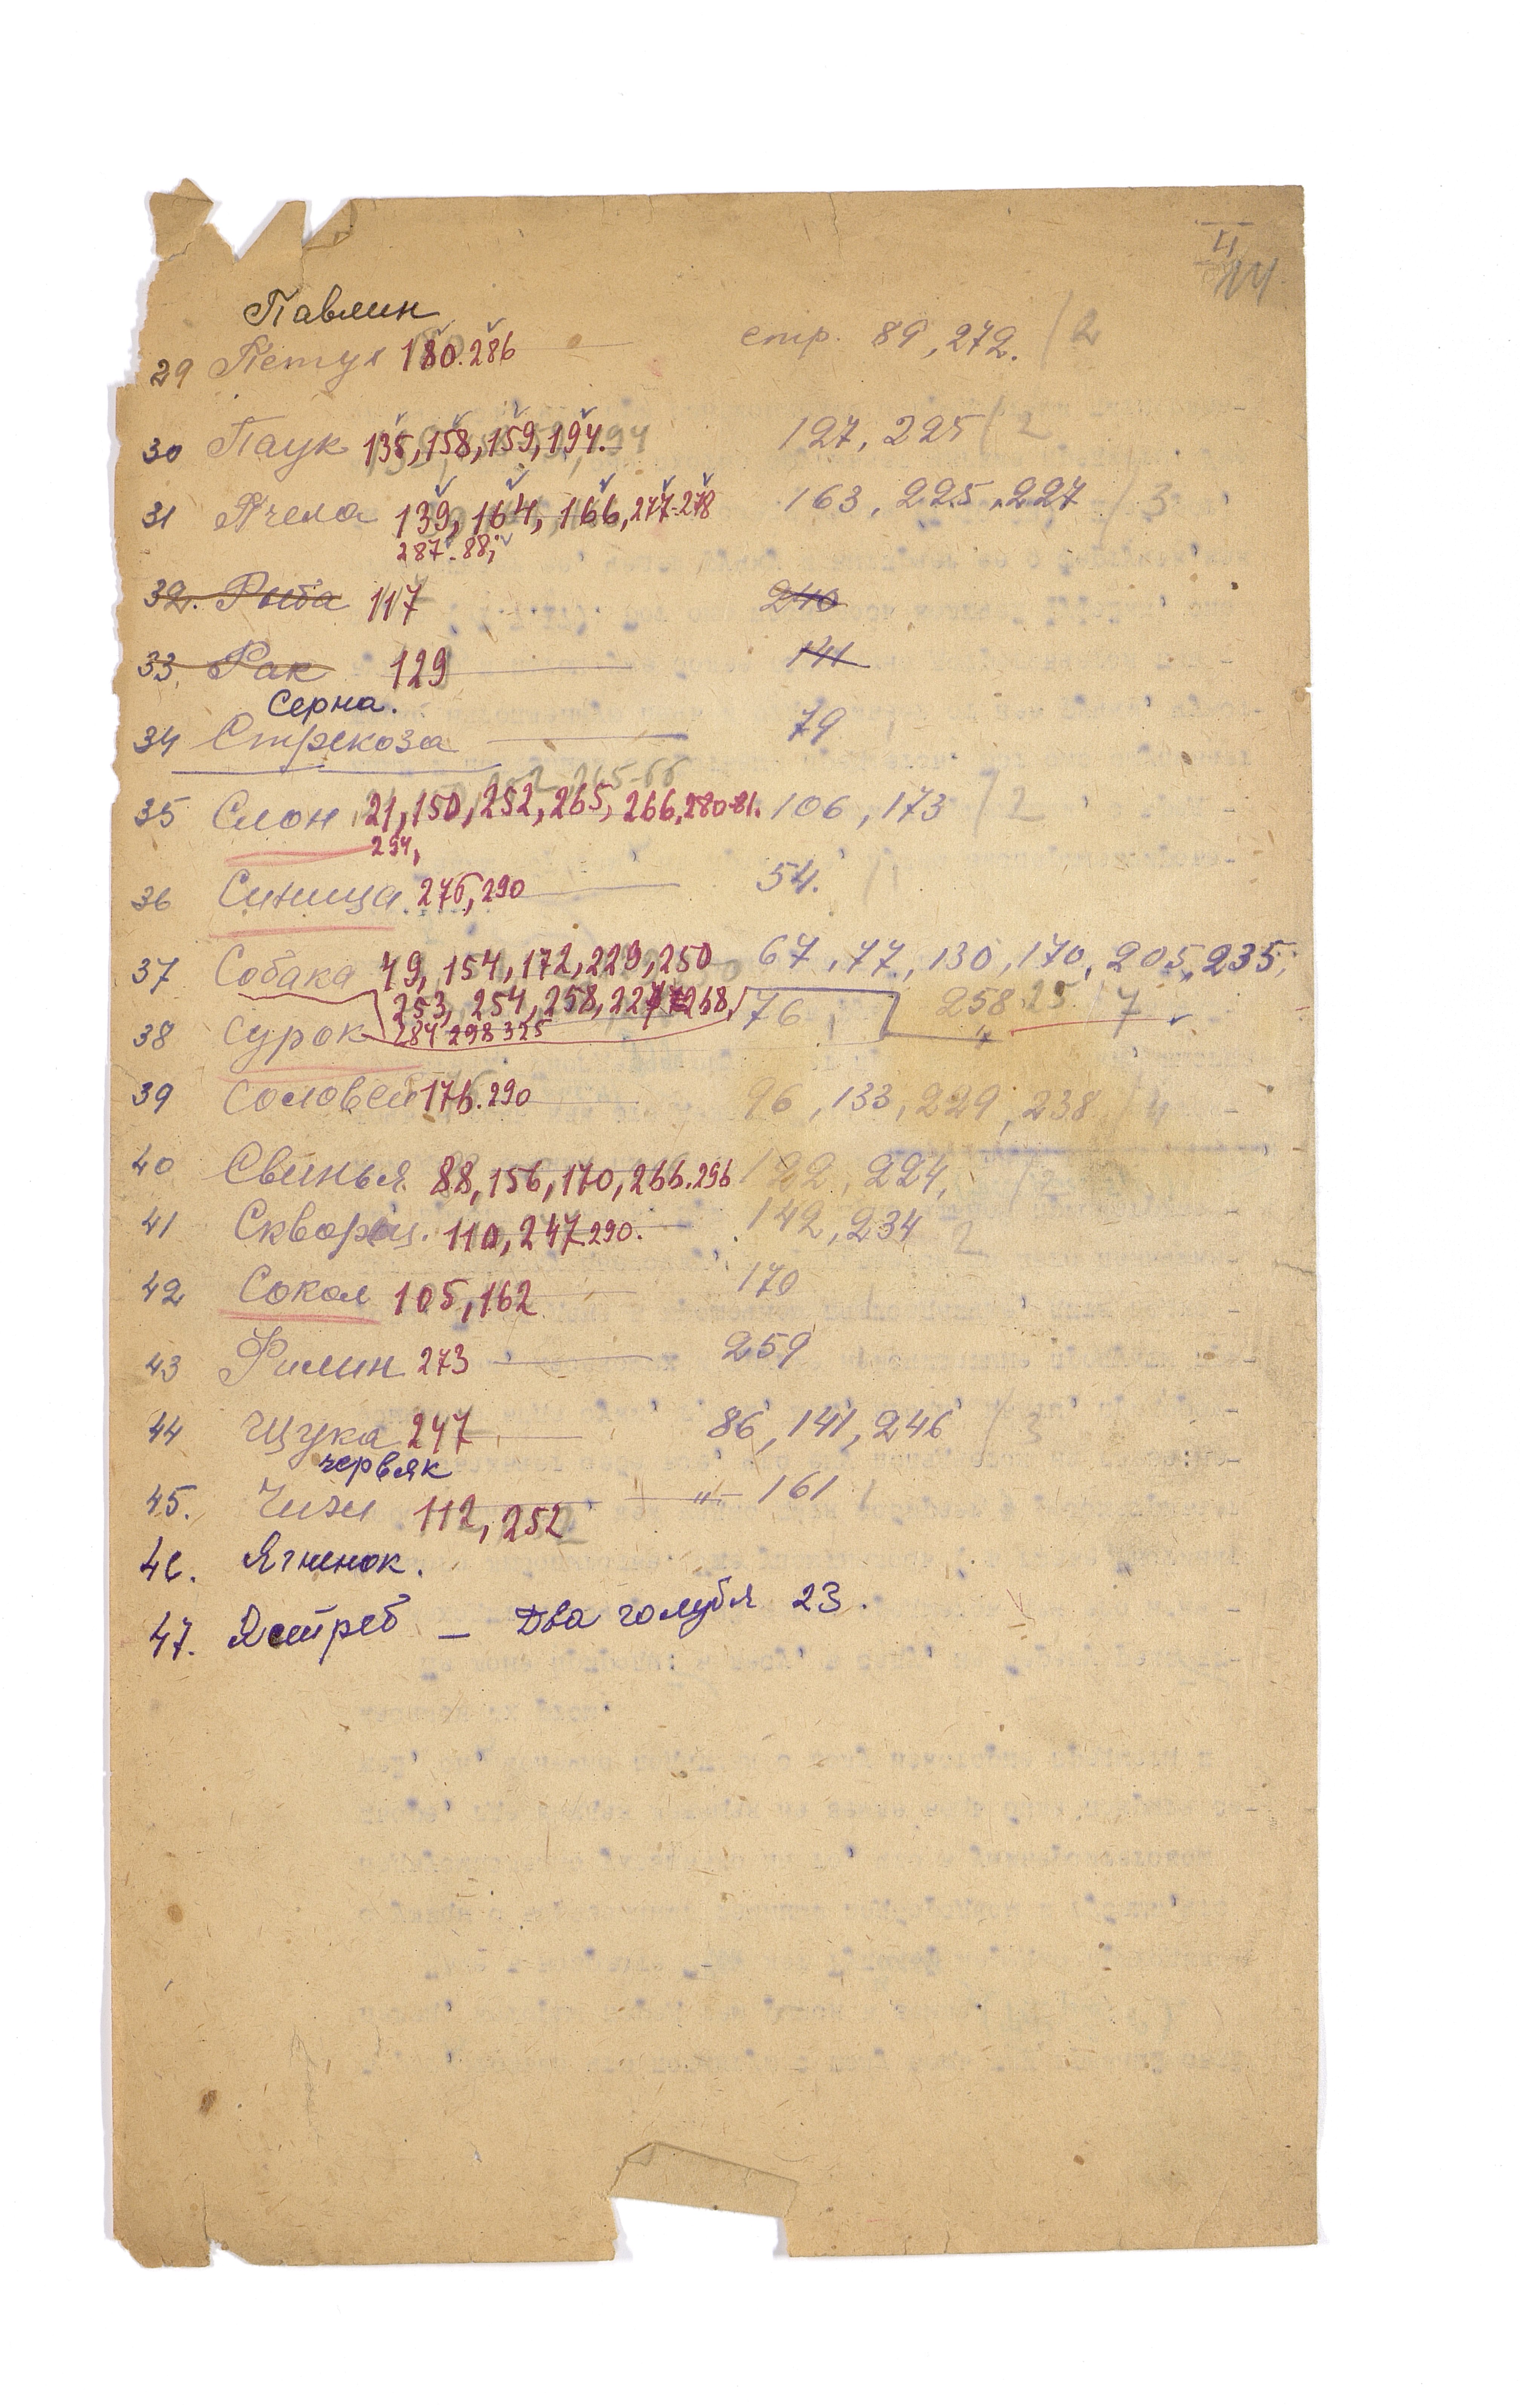 II
Павлин
29 Петух 180. 286 стр. 89, 272. / 2
30 Паук 135, 158, 159, 194. 127, 225 / 2
31 Пчела 139, 164, 166, 277-278 163, 225, 227 / 3
287-88;
32. Рыба 117 240
33. Рак 129 141
Серна.
34 Стрекоза 79
35 Слон 21, 150, 252, 265, 266, 280-81. 106, 173 / 2
294,
36 Синица 276, 290 54. / 1
37 Собака 49, 154, 172, 229, 250 67, 77, 130, 170, 205, 235,
253, 254, 258, 268, 258 25 / 7
38 Сурок 284 298 325 76
39 Соловей 176. 290 96, 133, 229, 238 / 4
40 Свинья 88, 156, 170, 266. 296 122, 224, / 2
41 Скворец. 110, 247. 290. 142, 234 2
42 Сокол 105, 162 170
43 Филин 273 259
44 Щука 247 86, 141, 246 / 3
червяк
45. Чиж 112, 252 " 161 /
46. Ягненок.
47. Ястреб – Два голубя 23.